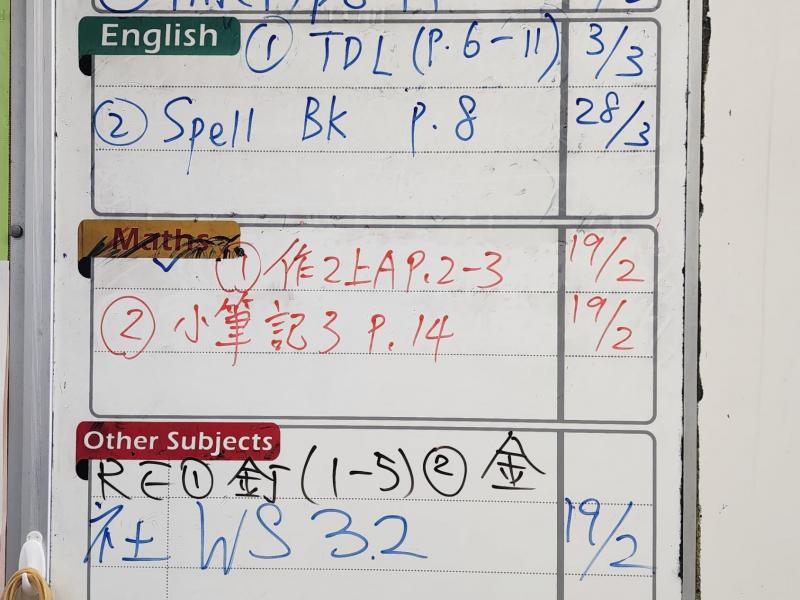 English ① TDL (P.6-11) 3/3
② Spell Bk p.8 28/3
Maths ① 作2上A P.2-3 19/2
② 小筆記3 P.14 19/2
Other Subjects
RE ① 釘 (1-5) ② 金
社 WS 3.2 19/2